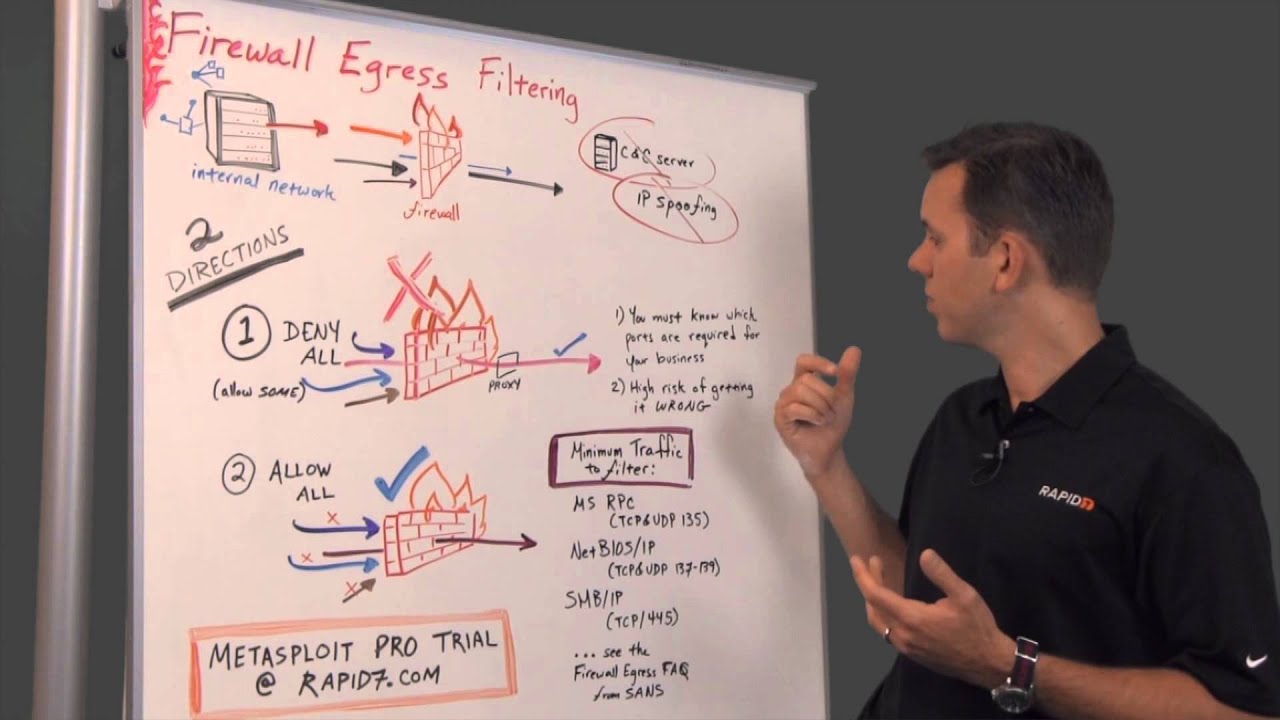 Firewall Egress Filtering
internal network
firewall
C&C server
IP Spoofing
2
DIRECTIONS
1 DENY
ALL
(allow SOME)
PROXY
1) You must know which
ports are required for
your business
2) High risk of getting
it WRONG
2 ALLOW
ALL
Minimum Traffic
to filter:
MS RPC
(TCP&UDP 135)
NetBIOS/IP
(TCP&UDP 137-139)
SMB/IP
(TCP/445)
... see the
Firewall Egress FAQ
from SANS
METASPLOIT PRO TRIAL
@ RAPID7.COM
RAPID7